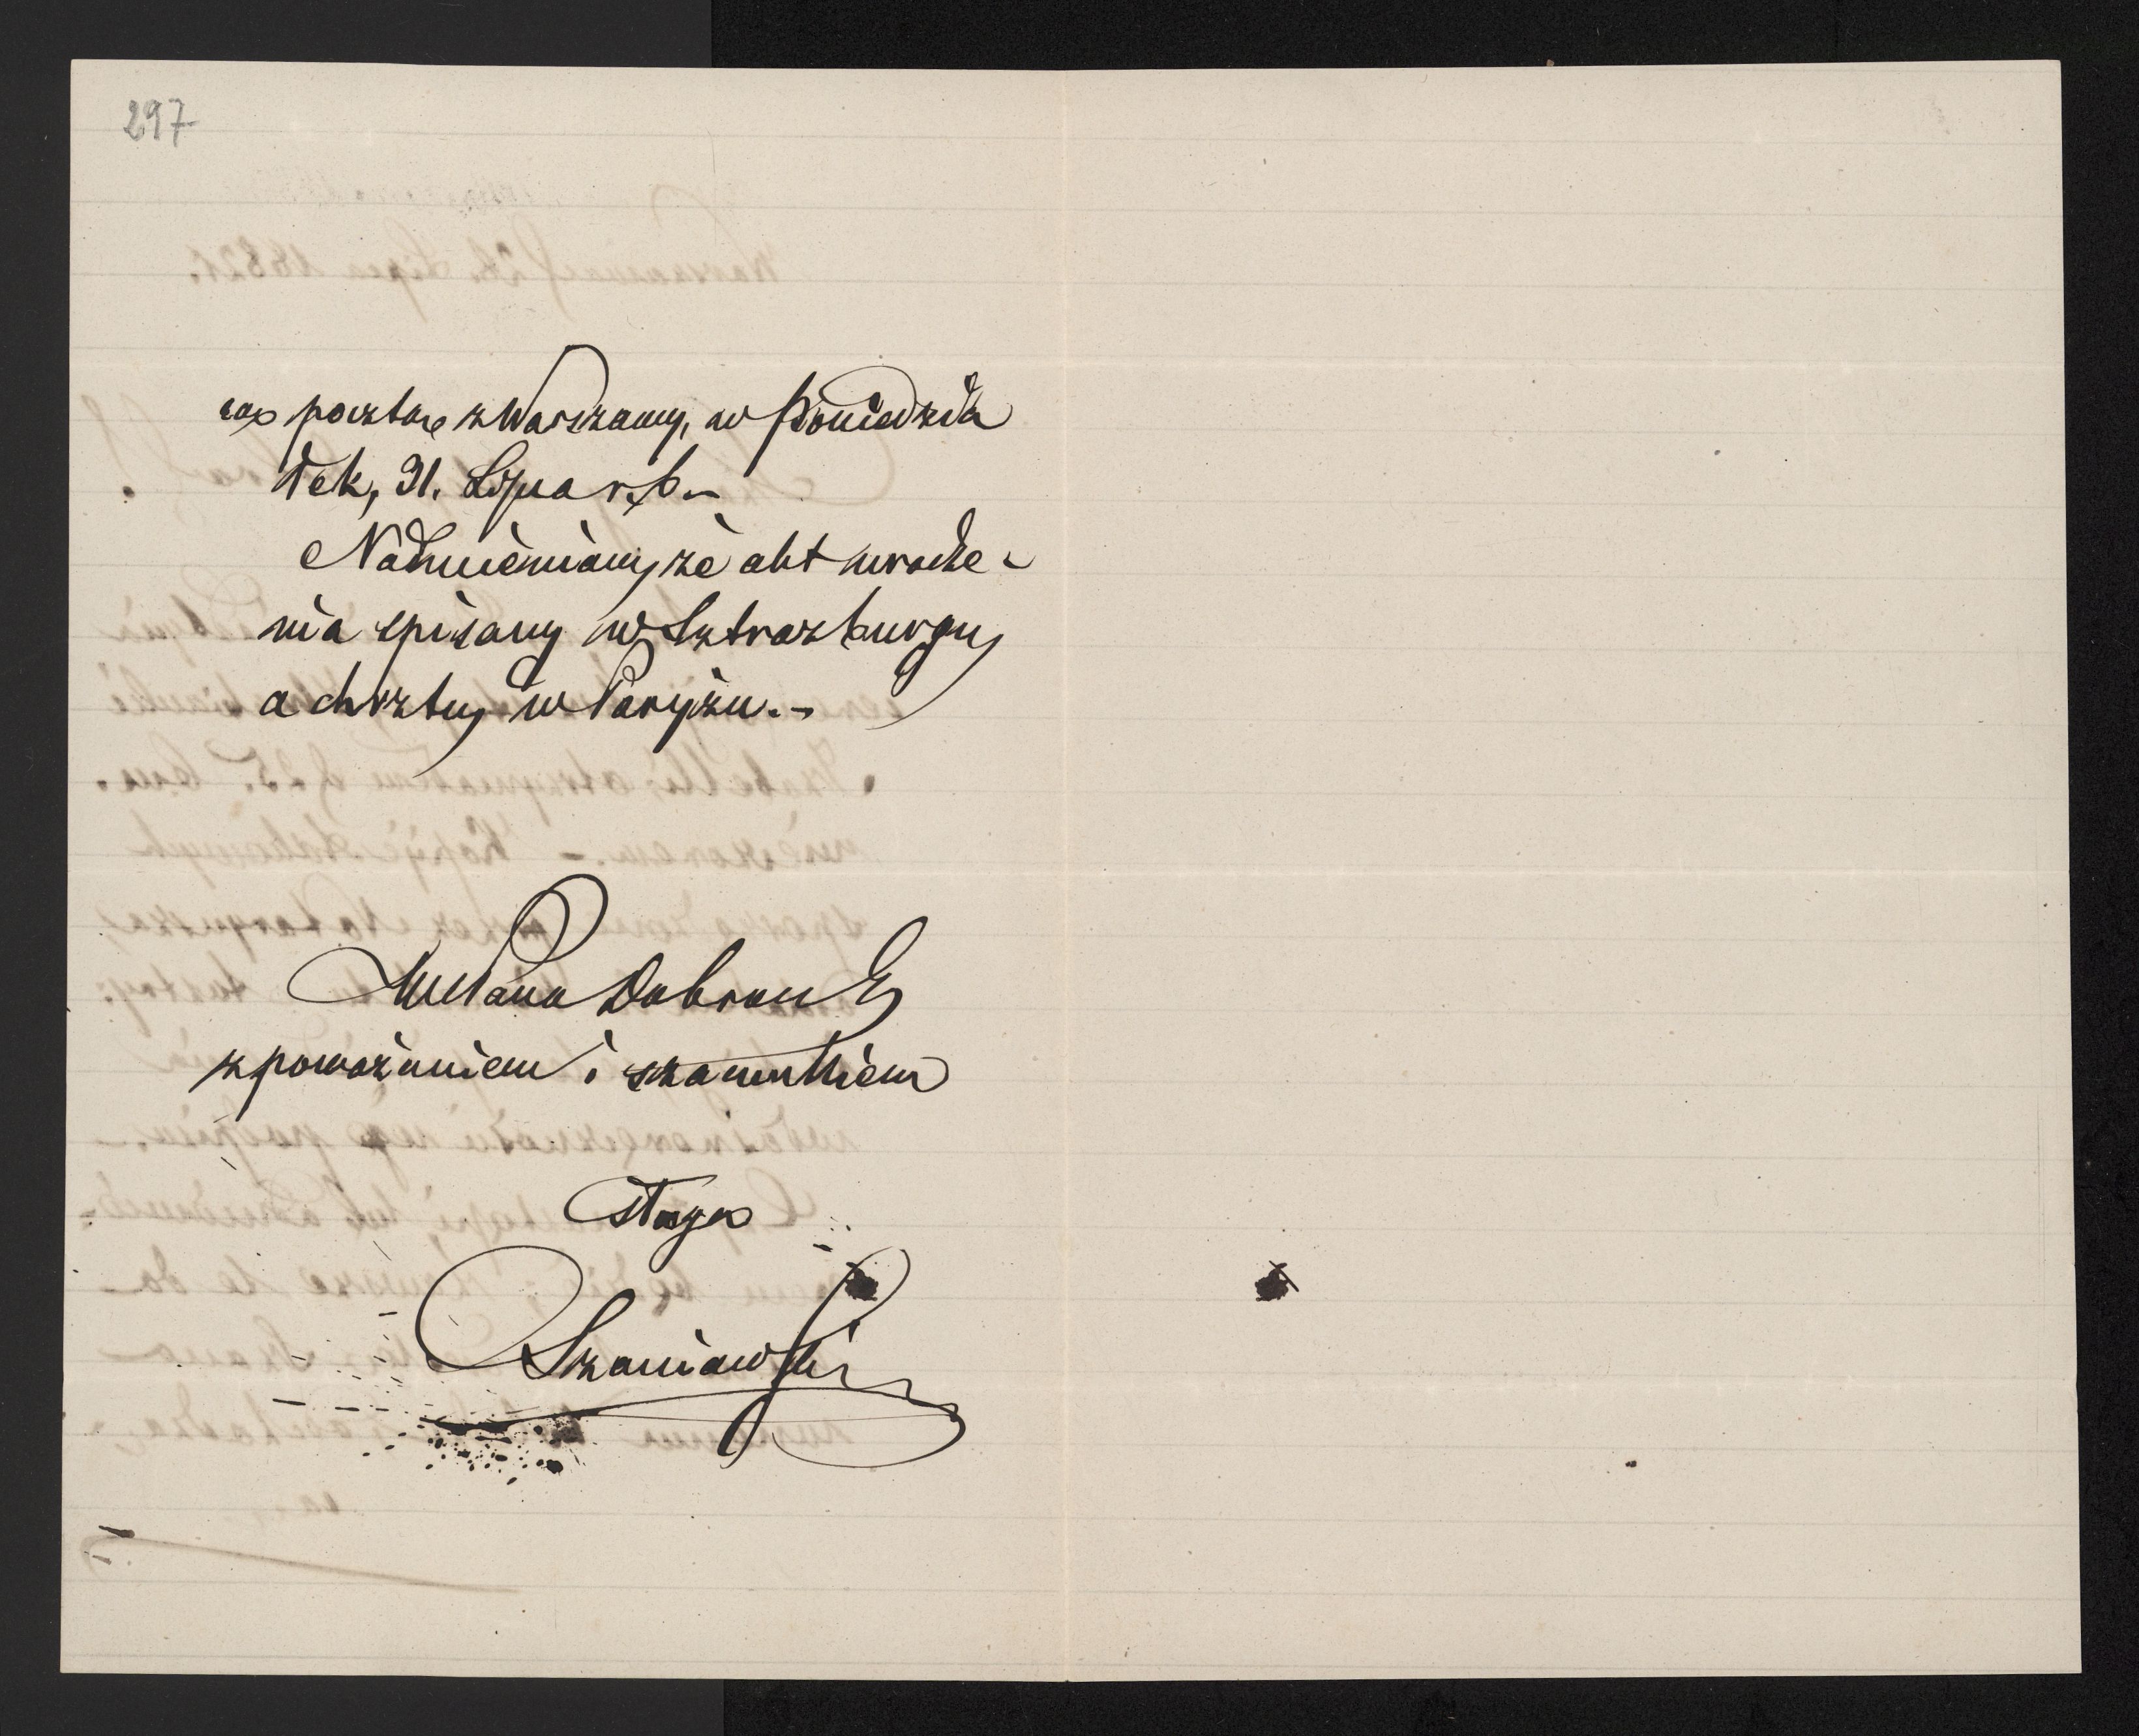 297
cą pocztą z Warszawy, w Poniedzia
łek, 31. Lipca r.b.—
Nadmieniamy że akt urodze-
nia spisany w Sztrazburgu
a chrztu w Paryżu.—
Pana Dobrodz
z poważaniem i szacunkiem
sługa
Szaniawski